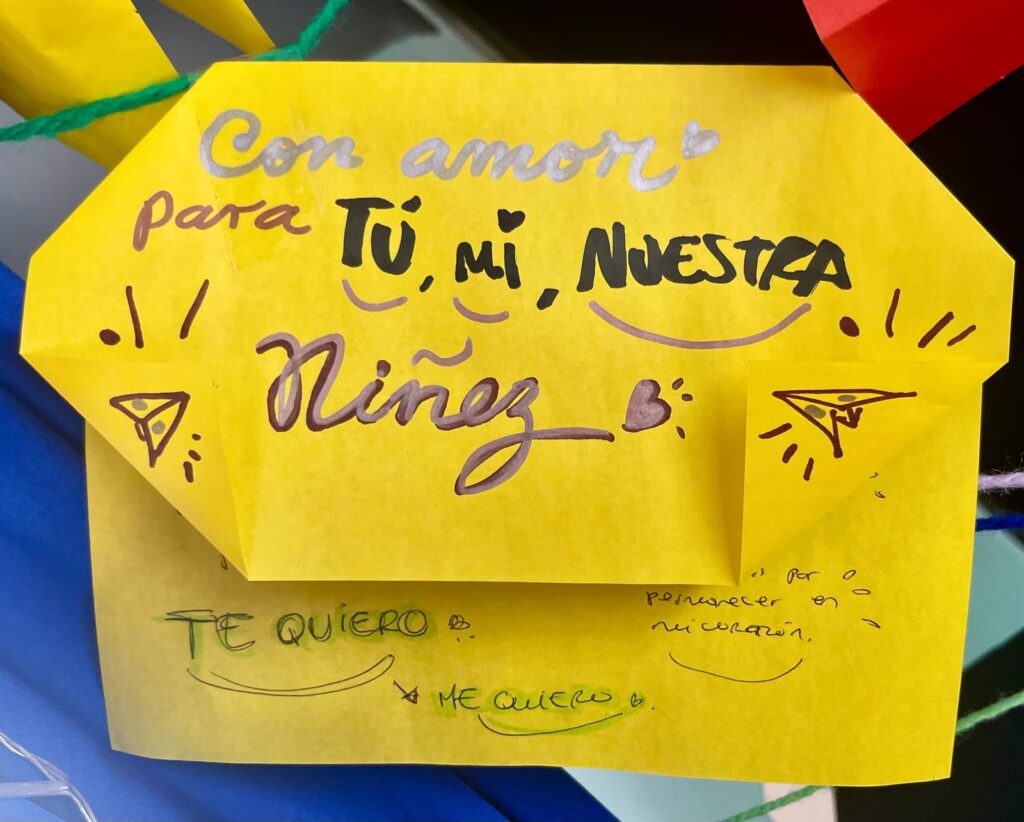 Con amor
para TÚ, Mi, NUESTRA
Niñez
por
permanecer en
mi corazón.
TE QUIERO
ME QUIERO